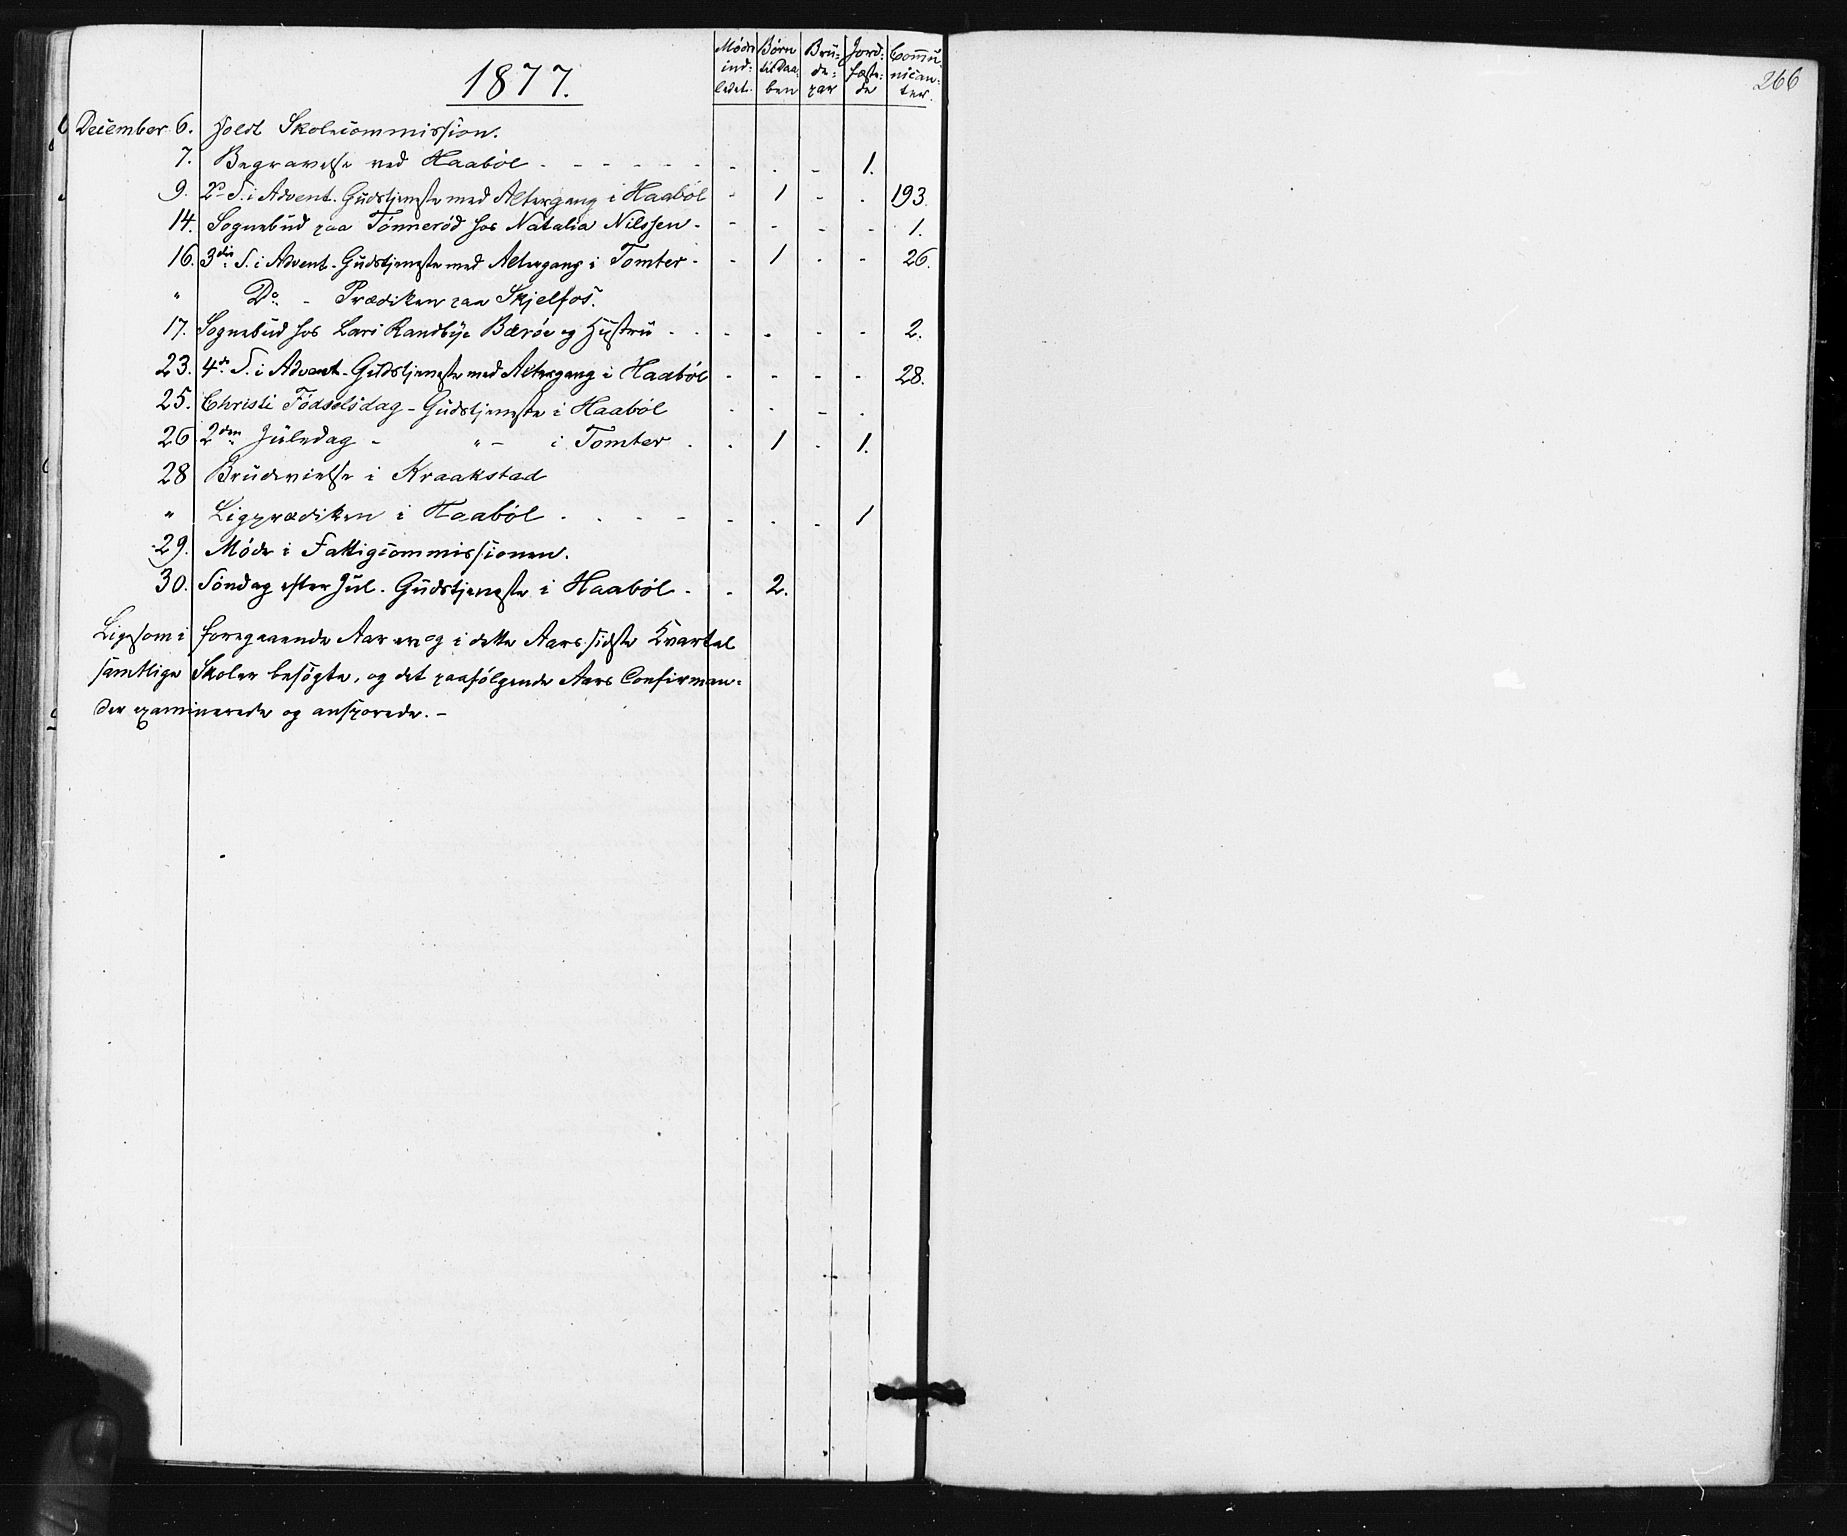 1877.
Møder Børn Bru- Jord- Commu-
ind- til Daa- de- fæste- nican-
ledet. ben par de ter.
December 6. Holdt Skolecommission.
7. Begravelse ved Haabøl - - - - - - - - - 1.
9. 2den S. i Advent. Gudstjeneste med Altergang i Haabøl - 1 - - 193.
14. Sognebud paa Tønnerød hos Natalia Nilssen - - - - - 1.
16. 3die S. i Advent. Gudstjeneste med Altergang i Tomter - - 1 - - 26.
" Do. - Prædiken paa Skjelfos.
17. Sognebud hos Lars Randbye Bærøe og Hustru - - - - - - 2.
23. 4de S. i Advent. Gudstjeneste med Altergang i Haabøl - - - - 28.
25. Christi Fødselsdag - Gudstjeneste i Haabøl - - - -
26 2den Juledag - " - i Tomter - - 1 - 1.
28 Brudevielse i Kraakstad
" Ligprædiken i Haabøl - - - - - - - 1
29. Møde i Fattigcommissionen.
30. Søndag efter Jul. Gudstjeneste i Haabøl - - 2.
Ligesom i foregaaende Aar er og i dette Aars sidste Kvartal
samtlige Skoler besøgte, og det paafølgende Aars Confirman-
der examinerede og ansporede. -
266